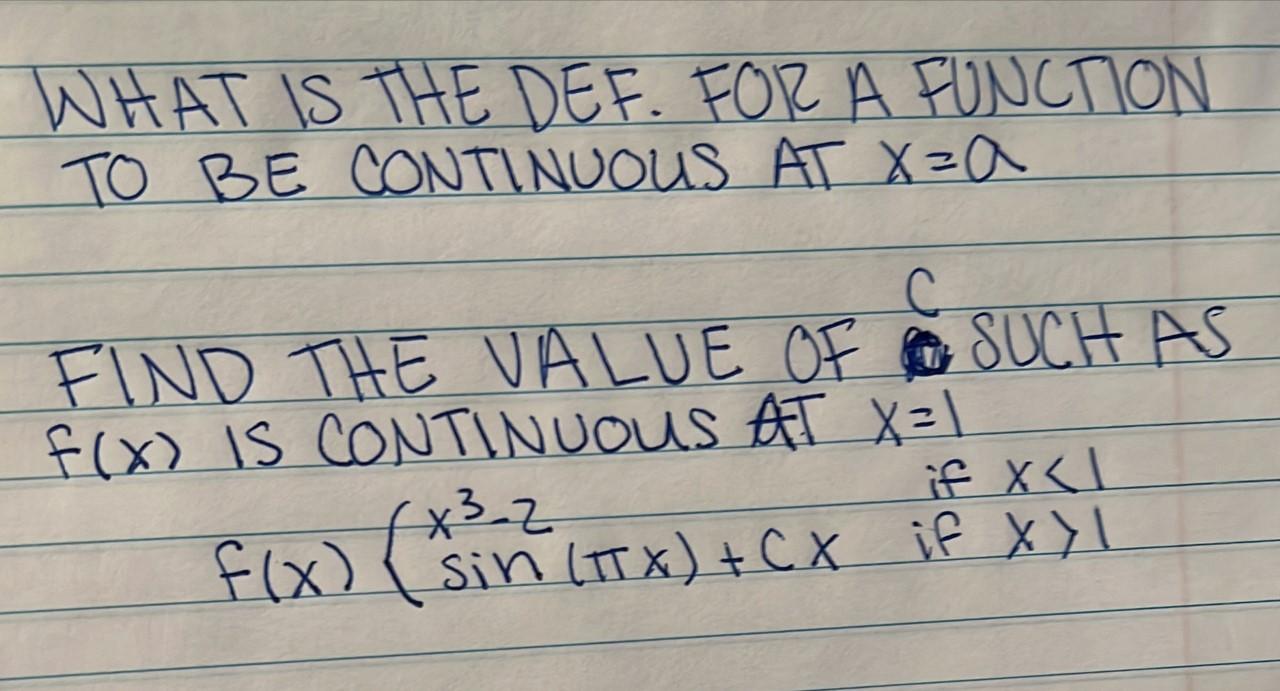 WHAT IS THE DEF. FOR A FUNCTION
TO BE CONTINUOUS AT X=a
FIND THE VALUE OF C SUCH AS
f(x) IS CONTINUOUS AT X=1
f(x) { x³-2 if x<1
sin(πx)+Cx if x>1